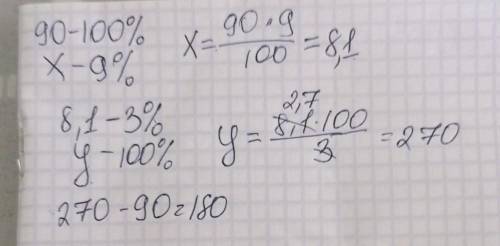 90-100%
x-9%
x = 90·9/100 = 8,1
8,1-3%
y-100%
y = 2,7 8,1·100/3 = 270
270-90=180